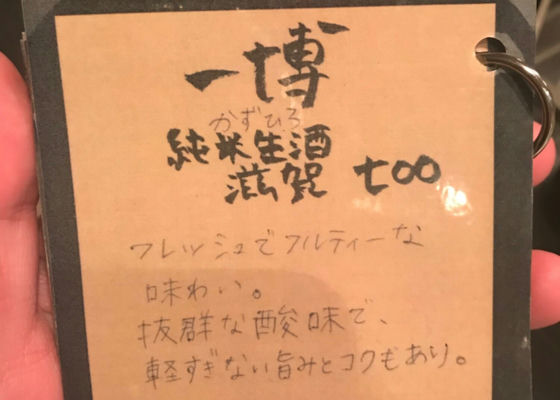 一博
かずひろ
純米生酒
滋賀 七〇〇
フレッシュでフルティーな
味わい。
抜群な酸味で、
軽すぎない旨みとコクもあり。